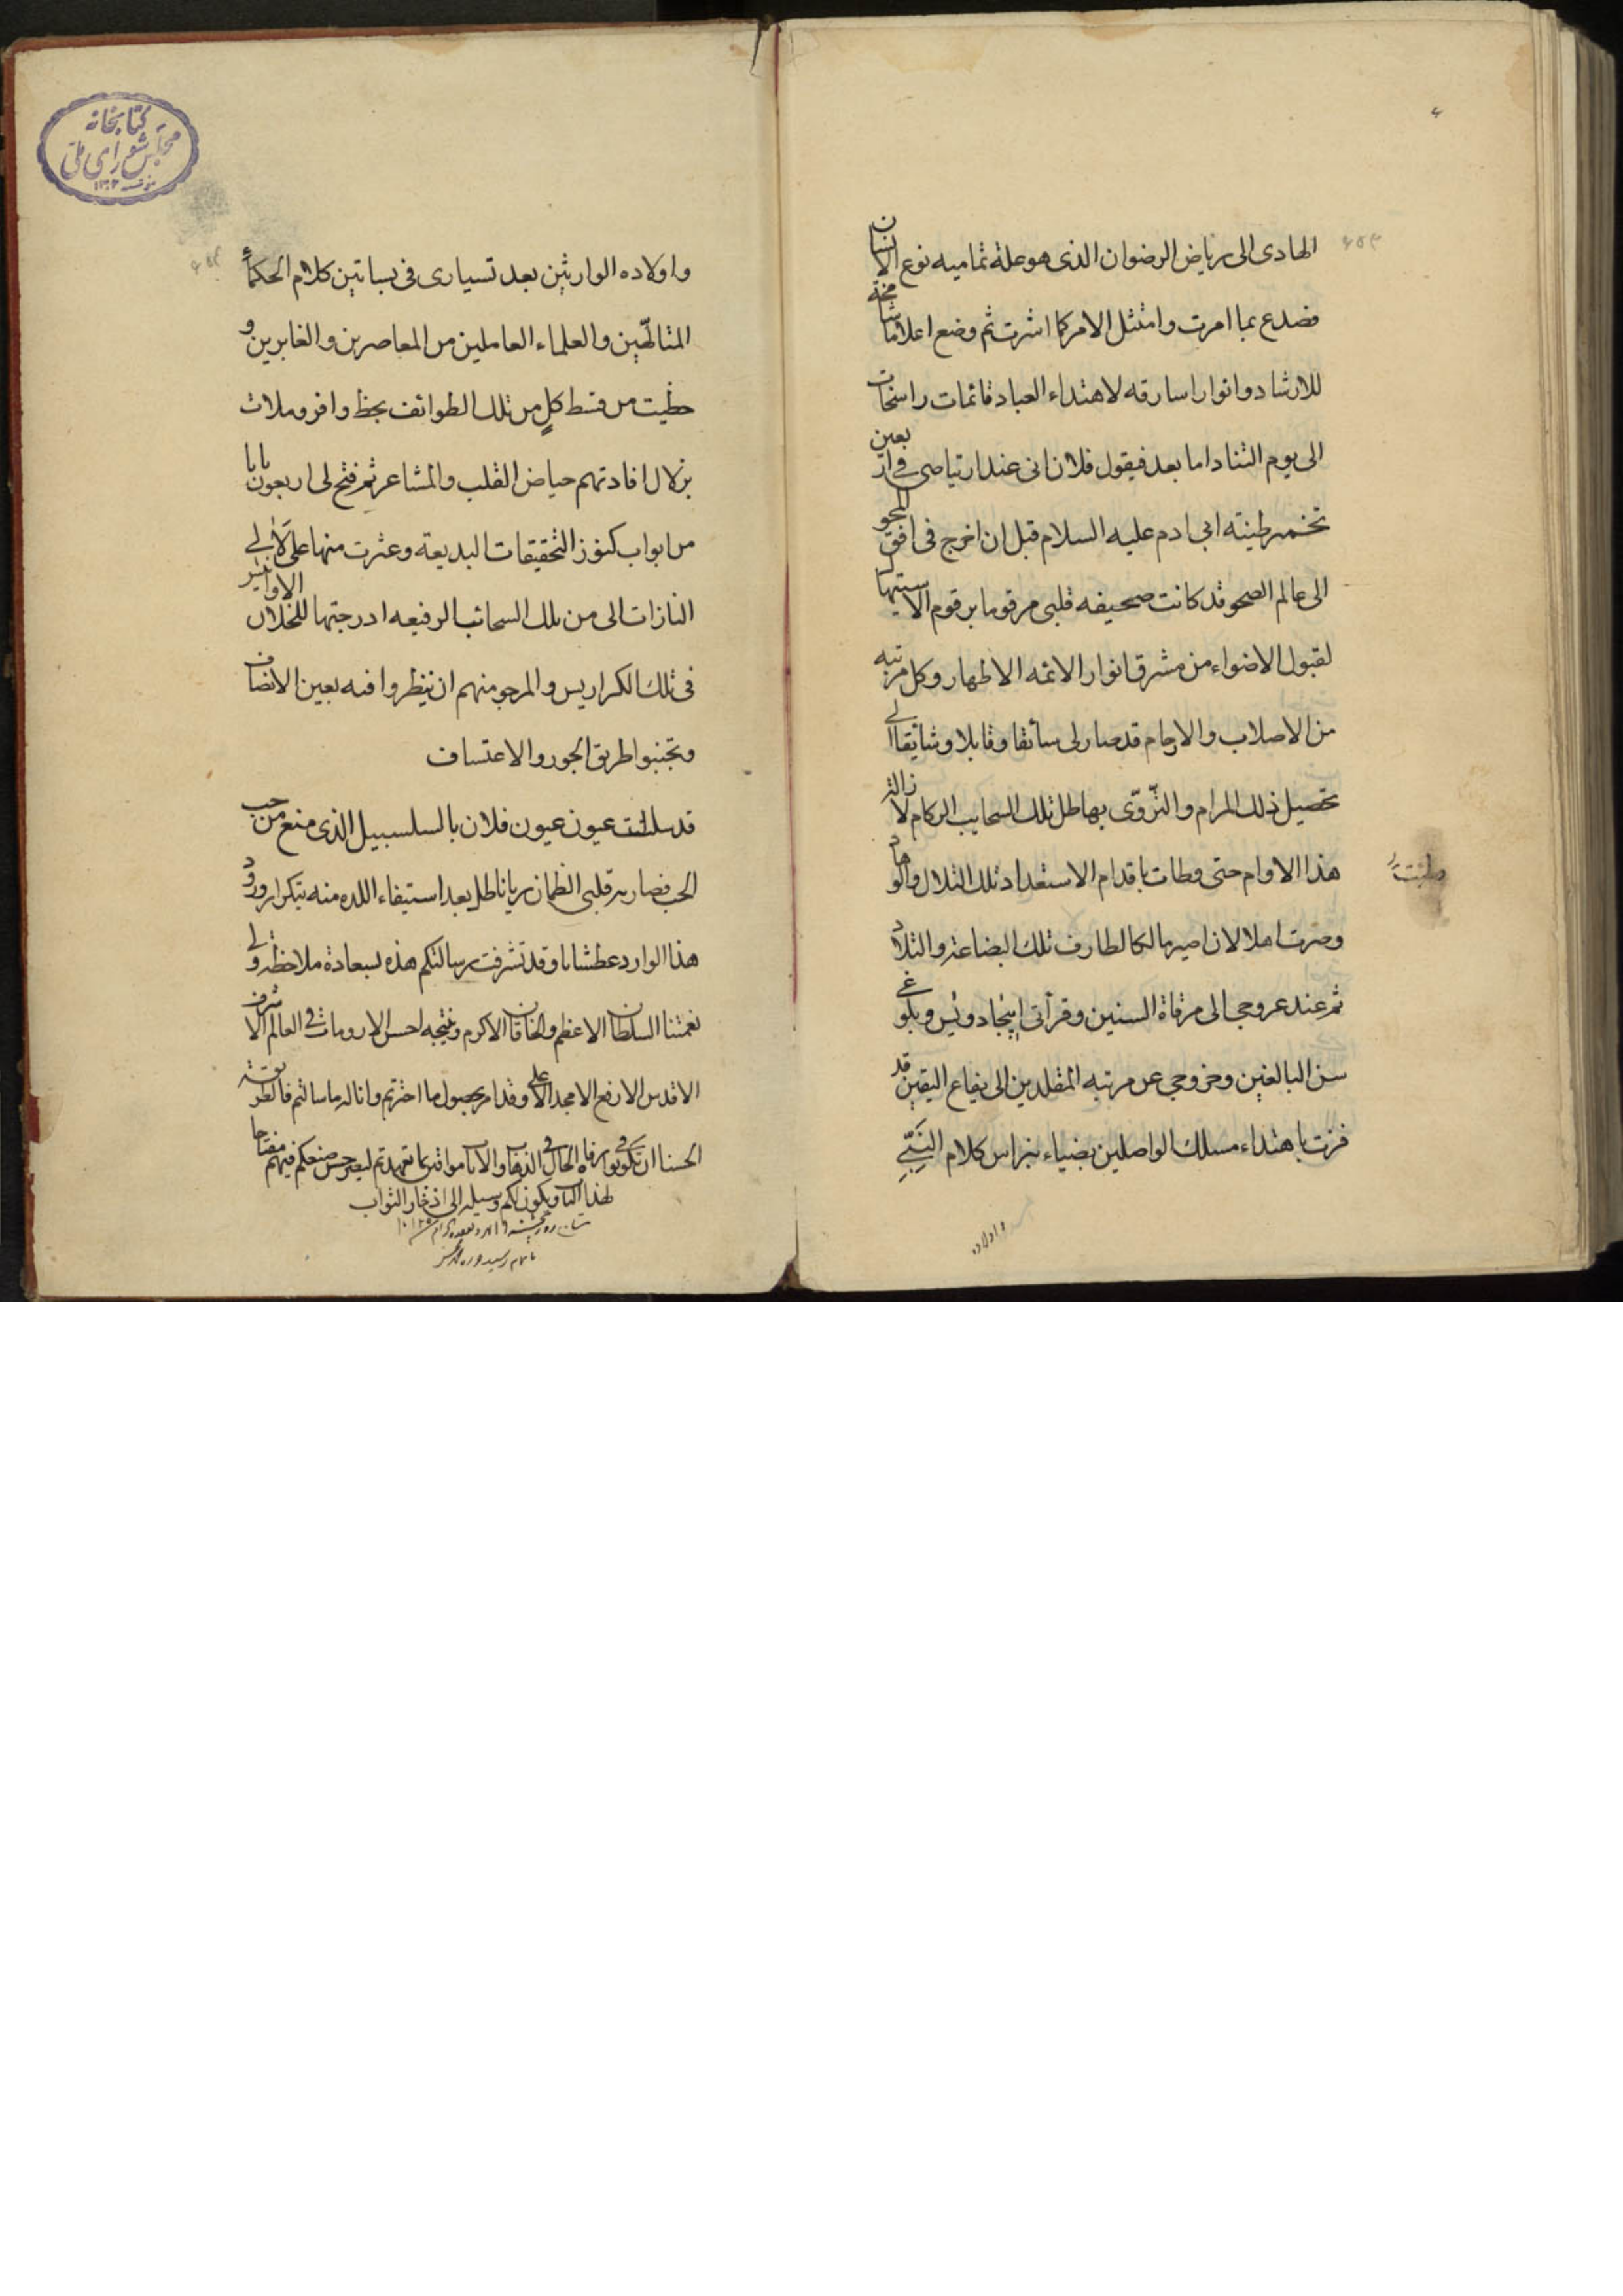 الهادى الى رياض الرضوان الذى هو علة تماميه نوع الانسان
فصدع بما امرت وامتثل الامر كما اشرت ثم وضع اعلاما شامخة
للارشاد وانوارا سارقه لاهتداء العباد قائمات راسخات
الى يوم التناد اما بعد فيقول فلان انى عند ارتياصى فى اربعين
تخمير طينته ابى ادم عليه السلام قبل ان اخرج فى افق المحو
الى عالم الصحو قد كانت صحيفه قلبى مرقوما برقوم الاستيها
لقبول الاضواء من مشرق انوار الائمه الاطهار وكل مرتبه
من الاصلاب والارحام قد صار لى سائقا وقابلا وشائقا الى
تحصيل ذلك المرام والتروّى بهاطل تلك السحايب الركام لا زالت
هذا الاوام حتى وطات باقدام الاستعداد تلك التلال والوهاد
وطئت
وصرت اهلا لان اصير مالكا لطارف تلك البضاعة والتلاد
ثم عند عروجى الى مرقاة السنين وقرأتى ابجاد ويس وبلوغى
سن البالغين وخروجى عن مرتبه المقلدين الى يفاع اليقين قد
فزت باهتداء مسلك الواصلين بضياء نبراس كلام النبىّ
واولاده
كتابخانه
مجلس شوراى ملى
واولاده الوارثين بعد تسيارى فى بساتين كلام الحكماء
المتالهّين والعلماء العاملين من المعاصرين والغابرين و
حظيت من قسط كلٍ من تلك الطوائف بحظ وافر وملات
بزلال افادتهم حياض القلب والمشاعر ثم فتح لى اربعون بابا
من ابواب كنوز التحقيقات البديعة وعثرت منها على لالى
النازات الى من تلك السحائب الرفيعه ادرجتها للخلان
فى تلك الكراريس والمرجو منهم ان ينظروا فيه بعين الانصاف
وتجنبوا طريق الجور والاعتساف
قد سلتت عيون عيون فلان بالسلسبيل الذى منع من حب
الحب فصار به قلبى الظمان ريانا طل بعد استيفاء اللذه منه بتكرار ورود
هذا الوارد عطشانا وقد تشرفت رسالتكم هذه بسعادة ملاحظه ولى
نعمتنا السلطان الاعظم والخاقان الاكرم ونتيجه احسن الارومات فى العالم الاشرف
الاقدس الارفع الامجد الاعلى وقد امر بحصول ما اخترتم وانا له ما سالتم فالطريقة
الحسنا ان تكونوا برفاه الحال فى الذهاب والاياب موافق بما تعهدتم ليصير حسن صنعكم فيهم مفتاحا
لهذا الباب ويكون لكم وسيله الى اذخار الثواب